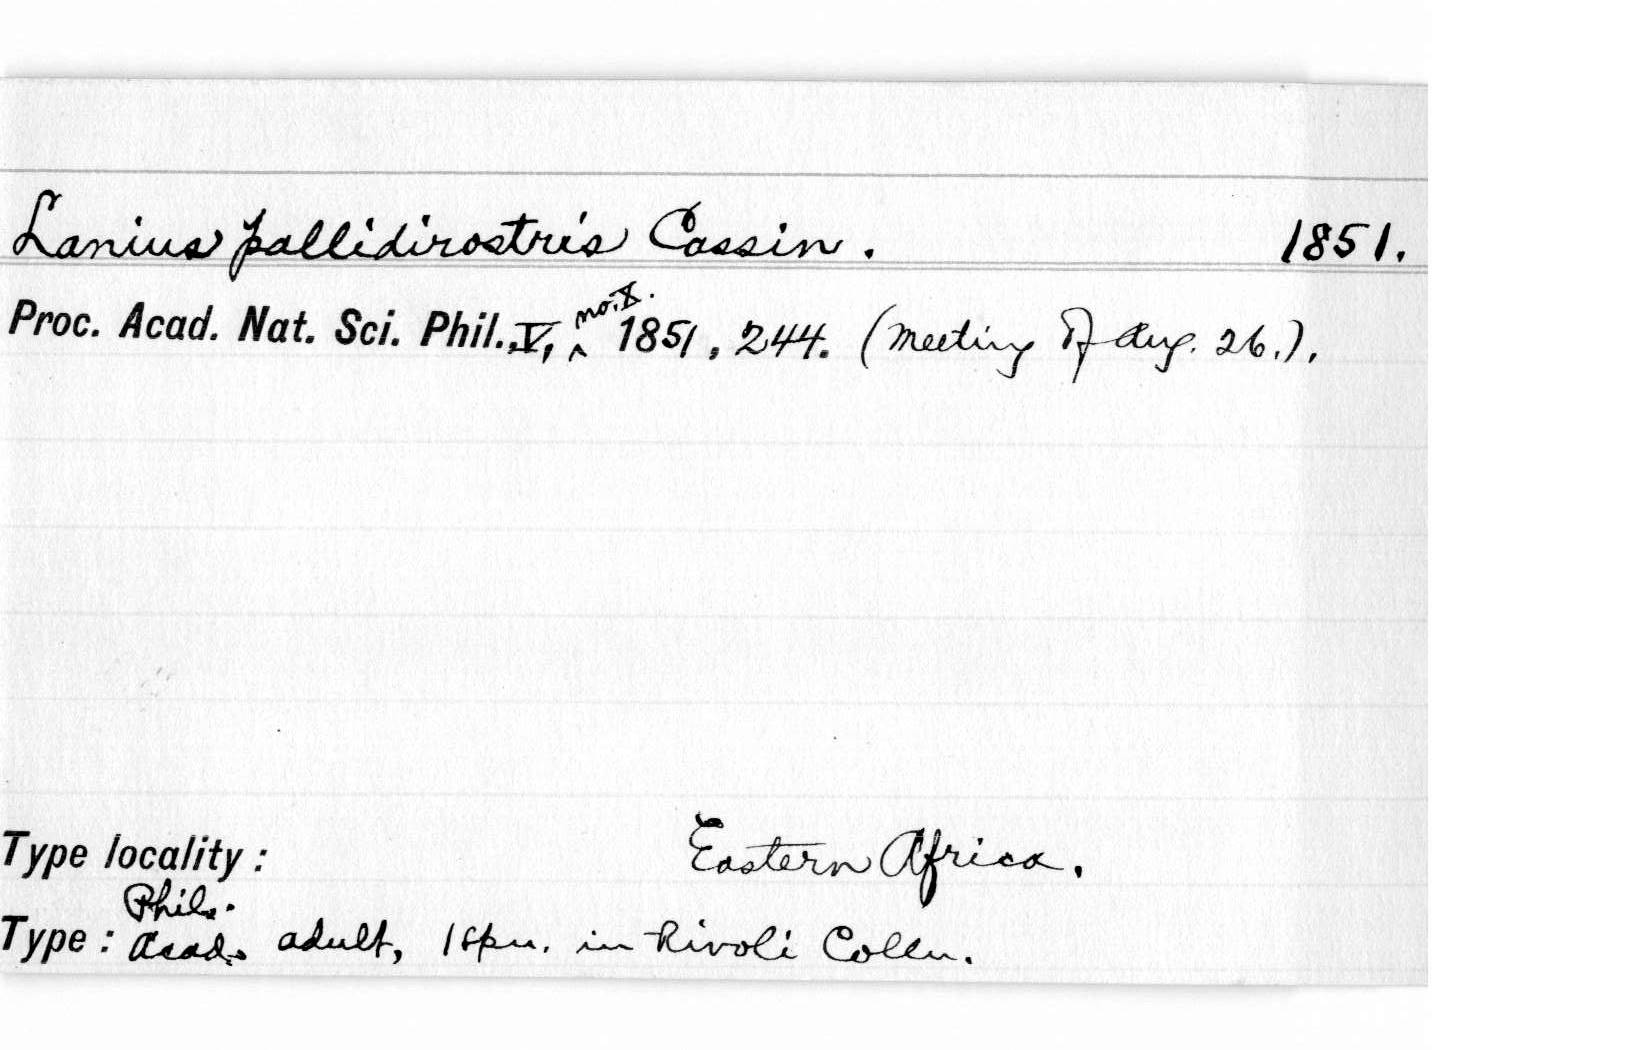 Lanius pallidirostris Cassin. 1851.
Proc. Acad. Nat. Sci. Phil., V, ^ no. X. 1851, 244. (Meeting of Aug. 26.).
Type locality: Eastern Africa.
Phil.
Type: Acad. adult, 1 spn. in Rivoli Colln.